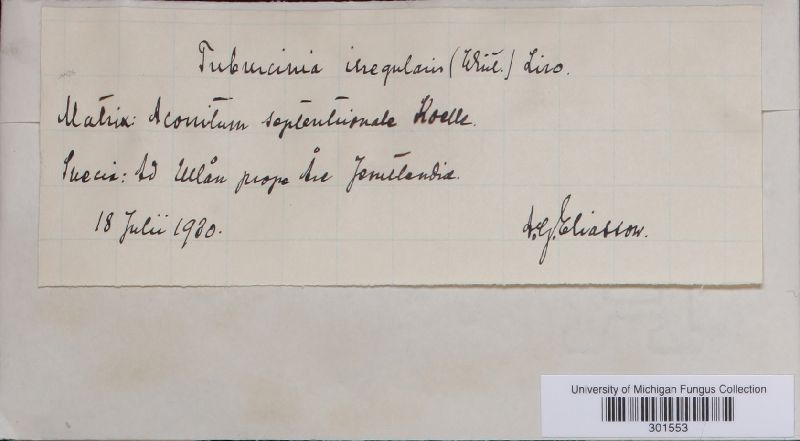 Tuburcinia irregularis (Wint.) Liro.
Matrix: Aconitum septentrionale Koelle.
Suecia: Ad Ullån prope Åre Jemtlandiæ.
18 Julii 1930.
A.G. Eliasson.
University of Michigan Fungus Collection
301553